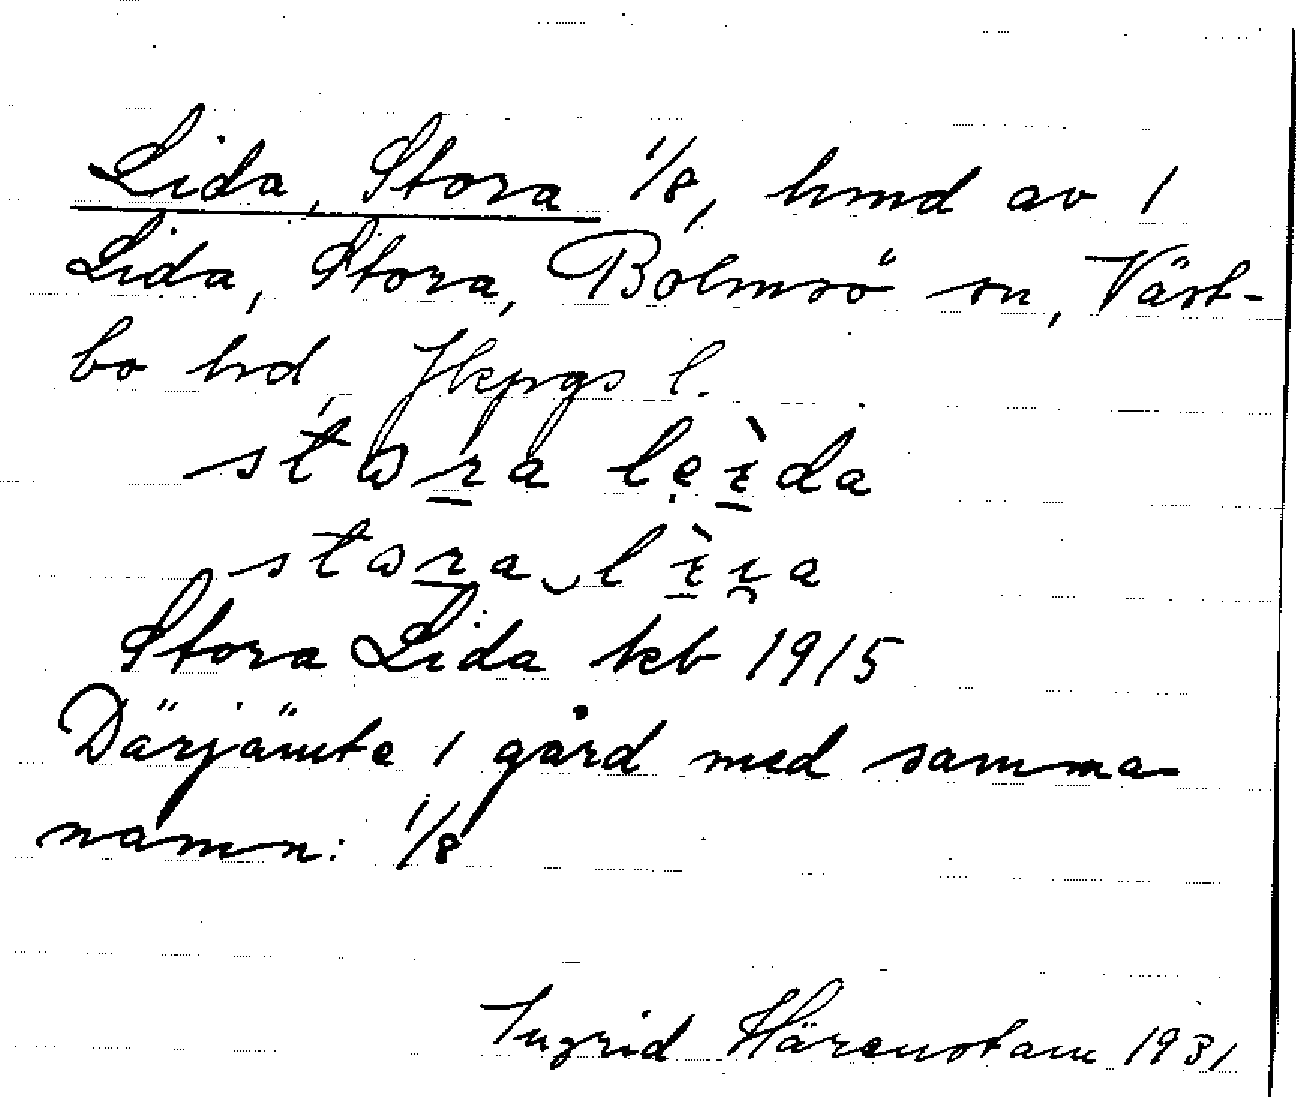 Lida, Stora 1/8, hmd av 1
Lida, Stora, Bolmsö sn, Väst-
bo hd, Jkpgs l.
stωra lẹɪ̀da
stωra‿lɪ̀ɪ̯a
Stora Lida tkb 1915
Därjämte 1 gård med samma
namn: 1/8
Ingrid Härenstam 1931